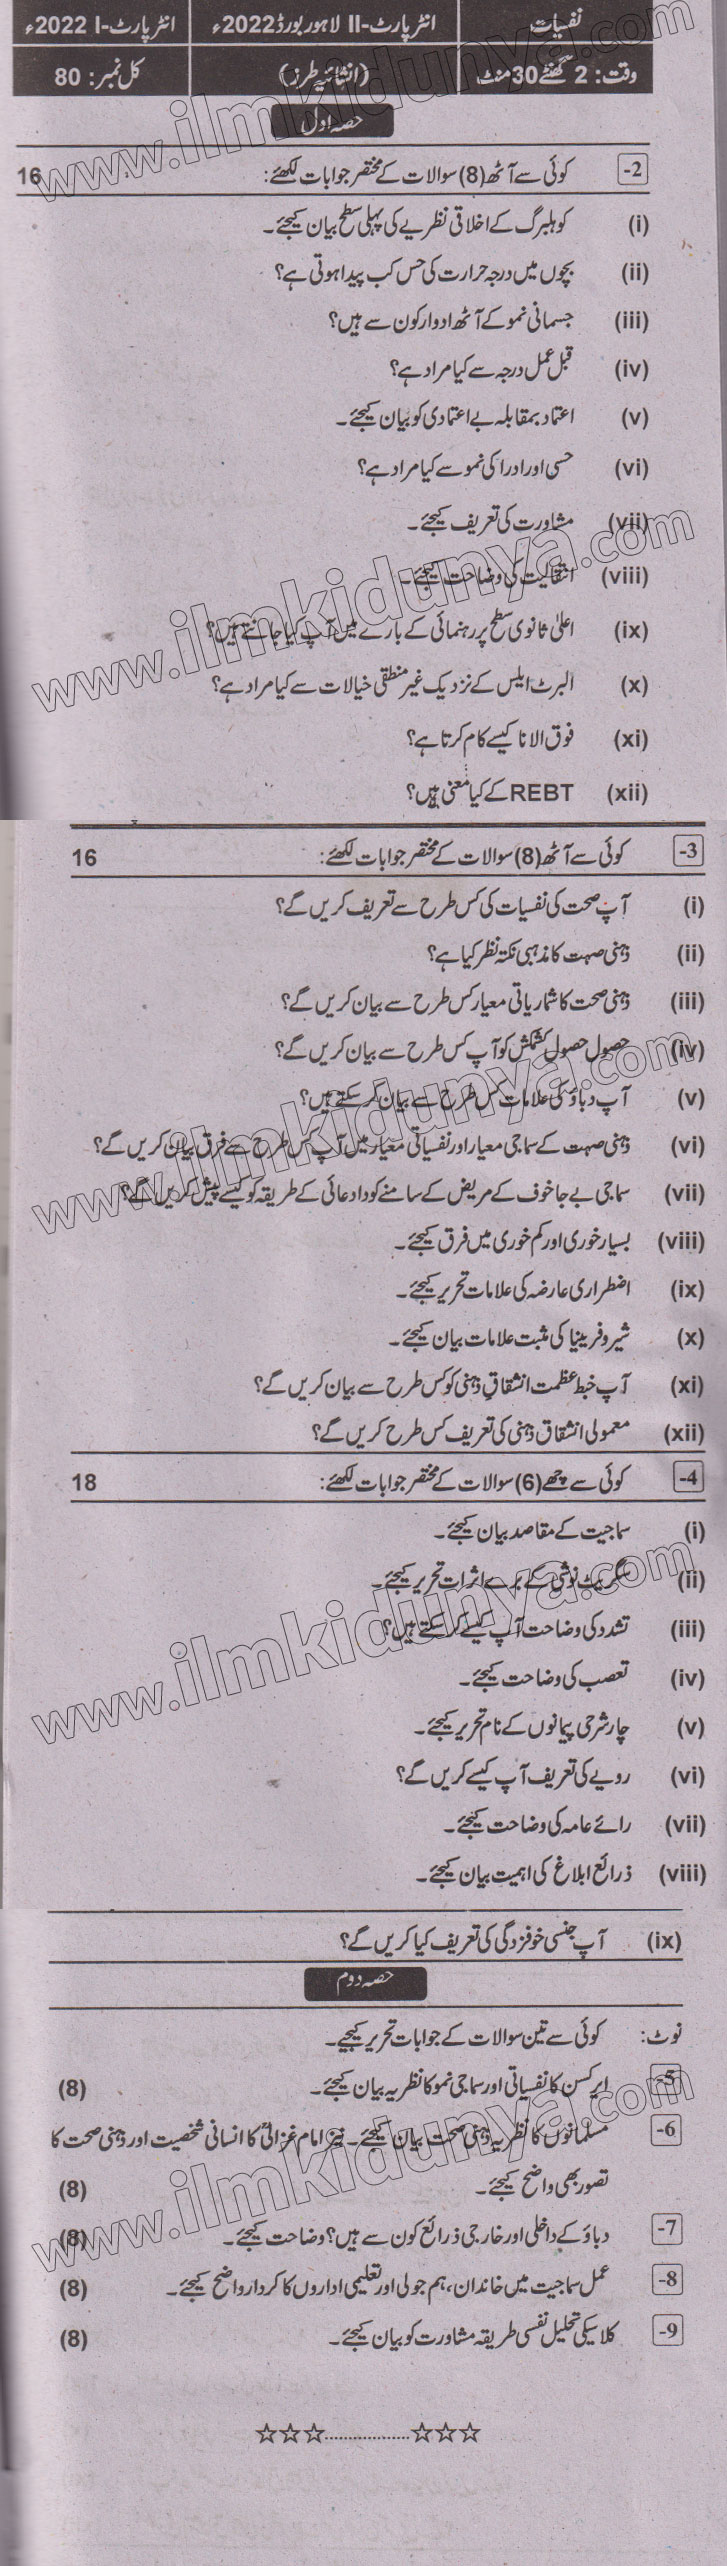 نفسیات انٹر پارٹ-II لاہور بورڈ 2022ء انٹر پارٹ-I 2022ء
وقت: 2 گھنٹے 30 منٹ (انشائیہ طرز) کل نمبر: 80
حصہ اول
2- کوئی سے آٹھ (8) سوالات کے مختصر جوابات لکھئے: 16
(i) کوہلبرگ کے اخلاقی نظریے کی پہلی سطح بیان کیجئے۔
(ii) بچوں میں درجہ حرارت کی حس کب پیدا ہوتی ہے؟
(iii) جسمانی نمو کے آٹھ ادوار کون سے ہیں؟
(iv) قبل عمل درجہ سے کیا مراد ہے؟
(v) اعتماد بمقابلہ بے اعتمادی کو بیان کیجئے۔
(vi) حسی اور ادراکی نمو سے کیا مراد ہے؟
(vii) مشاورت کی تعریف کیجئے۔
(viii) انتقالیت کی وضاحت کیجئے۔
(ix) اعلیٰ ثانوی سطح پر رہنمائی کے بارے میں آپ کیا جانتے ہیں؟
(x) البرٹ ایلس کے نزدیک غیر منطقی خیالات سے کیا مراد ہے؟
(xi) فوق الانا کیسے کام کرتا ہے؟
(xii) REBT کے کیا معنی ہیں؟
3- کوئی سے آٹھ (8) سوالات کے مختصر جوابات لکھئے: 16
(i) آپ صحت کی نفسیات کی کس طرح سے تعریف کریں گے؟
(ii) ذہنی صہت کا مذہبی نکتہ نظر کیا ہے؟
(iii) ذہنی صحت کا شماریاتی معیار کس طرح سے بیان کریں گے؟
(iv) حصول حصول کشمکش کو آپ کس طرح سے بیان کریں گے؟
(v) آپ دباؤ کی علامات کس طرح سے بیان کر سکتے ہیں؟
(vi) ذہنی صہت کے سماجی معیار اور نفسیاتی معیار میں آپ کس طرح سے فرق بیان کریں گے؟
(vii) سماجی بے جا خوف کے مریض کے سامنے کودادعائی کے طریقہ کو کیسے پیش کریں گے؟
(viii) بسیار خوری اور کم خوری میں فرق کیجئے۔
(ix) اضطراری عارضہ کی علامات تحریر کیجئے۔
(x) شیزوفرینیا کی مثبت علامات بیان کیجئے۔
(xi) آپ خبط عظمت انشقاقِ ذہنی کو کس طرح سے بیان کریں گے؟
(xii) معمولی انشقاق ذہنی کی تعریف کس طرح کریں گے؟
4- کوئی سے چھے (6) سوالات کے مختصر جوابات لکھئے: 18
(i) سماجیت کے مقاصد بیان کیجئے۔
(ii) سگریٹ نوشی کے برے اثرات تحریر کیجئے۔
(iii) تشدد کی وضاحت آپ کیسے کر سکتے ہیں؟
(iv) تعصب کی وضاحت کیجئے۔
(v) چار شرحی پیمانوں کے نام تحریر کیجئے۔
(vi) رویے کی تعریف آپ کیسے کریں گے؟
(vii) رائے عامہ کی وضاحت کیجئے۔
(viii) ذرائع ابلاغ کی اہمیت بیان کیجئے۔
(ix) آپ جنسی خوفزدگی کی تعریف کیا کریں گے؟
حصہ دوم
نوٹ: کوئی سے تین سوالات کے جوابات تحریر کیجیے۔
5- ایرکسن کا نفسیاتی اور سماجی نمو کا نظریہ بیان کیجئے۔ (8)
6- مسلمانوں کا نظریہ ذہنی صحت بیان کیجئے۔ نیز امام غزالیؒ کا انسانی شخصیت اور ذہنی صحت کا
تصور بھی واضح کیجئے۔ (8)
7- دباؤ کے داخلی اور خارجی ذرائع کون سے ہیں؟ وضاحت کیجئے۔ (8)
8- عمل سماجیت میں خاندان، ہم جولی اور تعلیمی اداروں کا کردار واضح کیجئے۔ (8)
9- کلاسیکی تحلیل نفسی طریقہ مشاورت کو بیان کیجئے۔ (8)
☆☆☆..................☆☆☆
www.ilmkidunya.com
www.ilmkidunya.com
www.ilmkidunya.com
www.ilmkidunya.com
www.ilmkidunya.com